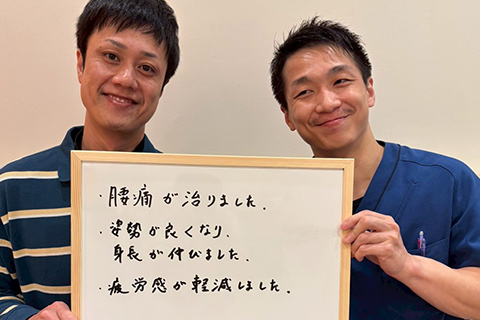 ・腰痛が治りました。
・姿勢が良くなり、
身長が伸びました。
・疲労感が軽減しました。